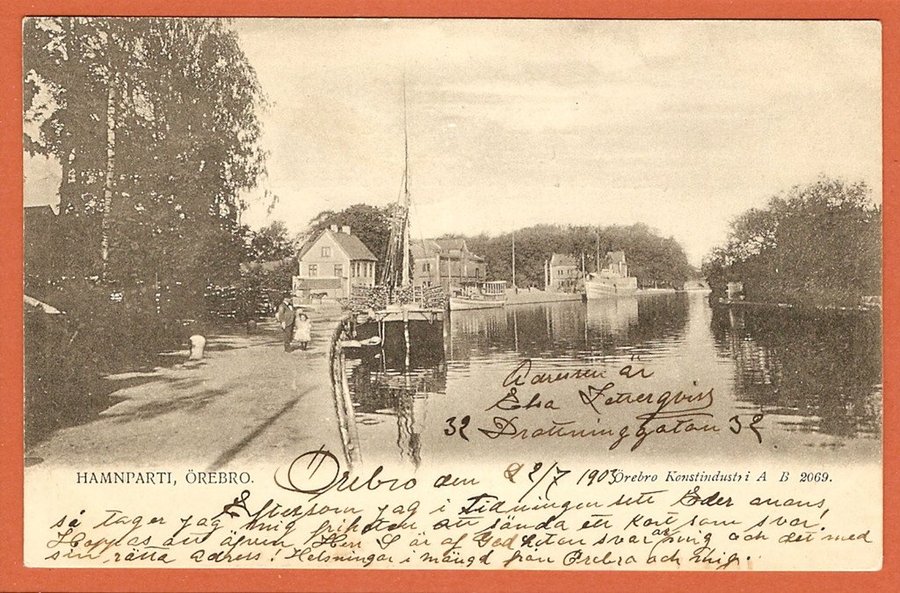 Adressen är
Elsa Zetterqvist
32 Drottninggatan 32
HAMNPARTI, ÖREBRO.
Örebro den 2/7 1903
Örebro Konstindustri A B 2069.
Eftersom jag i tidningen sett Eder anons,
så tager jag mig friheten att sända ett kort som svar!
Hoppas att äfven Herr är af svarar mig och det med
sin rätta adress! Helsningar i mängd från Örebro och mig.